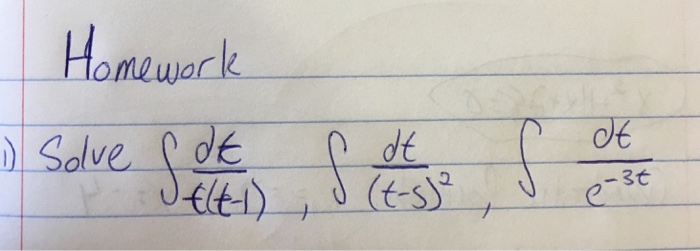 Homework
1) Solve ∫ dt/t(t-1) , ∫ dt/(t-5)² , ∫ dt/e^-3t